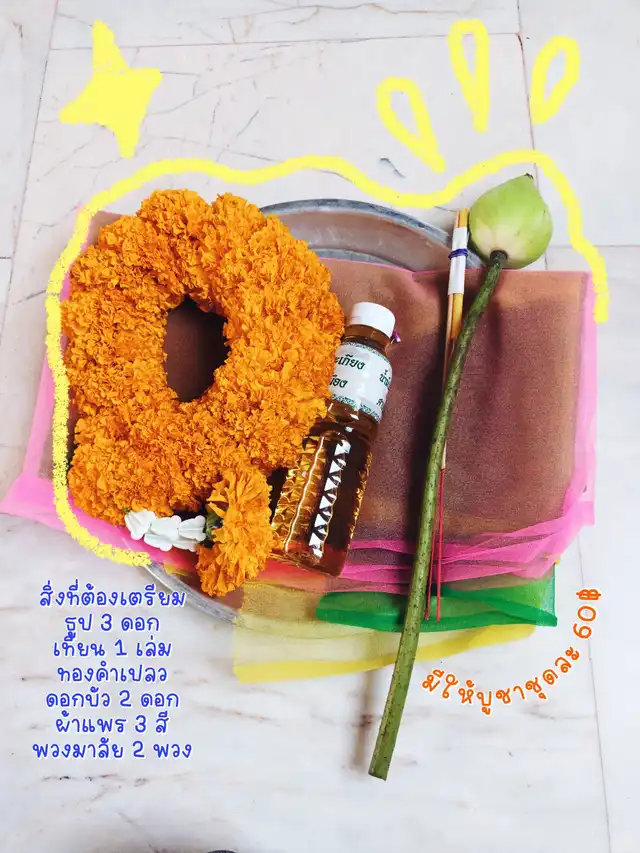 สิ่งที่ต้องเตรียม
ธูป 3 ดอก
เทียน 1 เล่ม
ทองคำเปลว
ดอกบัว 2 ดอก
ผ้าแพร 3 สี
พวงมาลัย 2 พวง
มีให้บูชาชุดละ 60 ฿